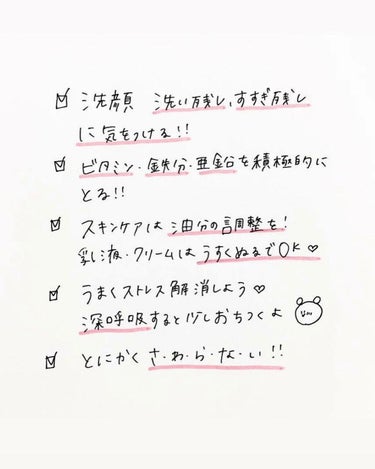 洗顔 洗い残し、すすぎ残し
に気をつける!!
ビタミン・鉄分・亜鉛を積極的に
とる!!
スキンケアは油分の調整を!
乳液・クリームはうすくぬるでOK♡
うまくストレス解消しよう♡
深呼吸すると少しおちつくよ
とにかくさ・わ・ら・な・い!!